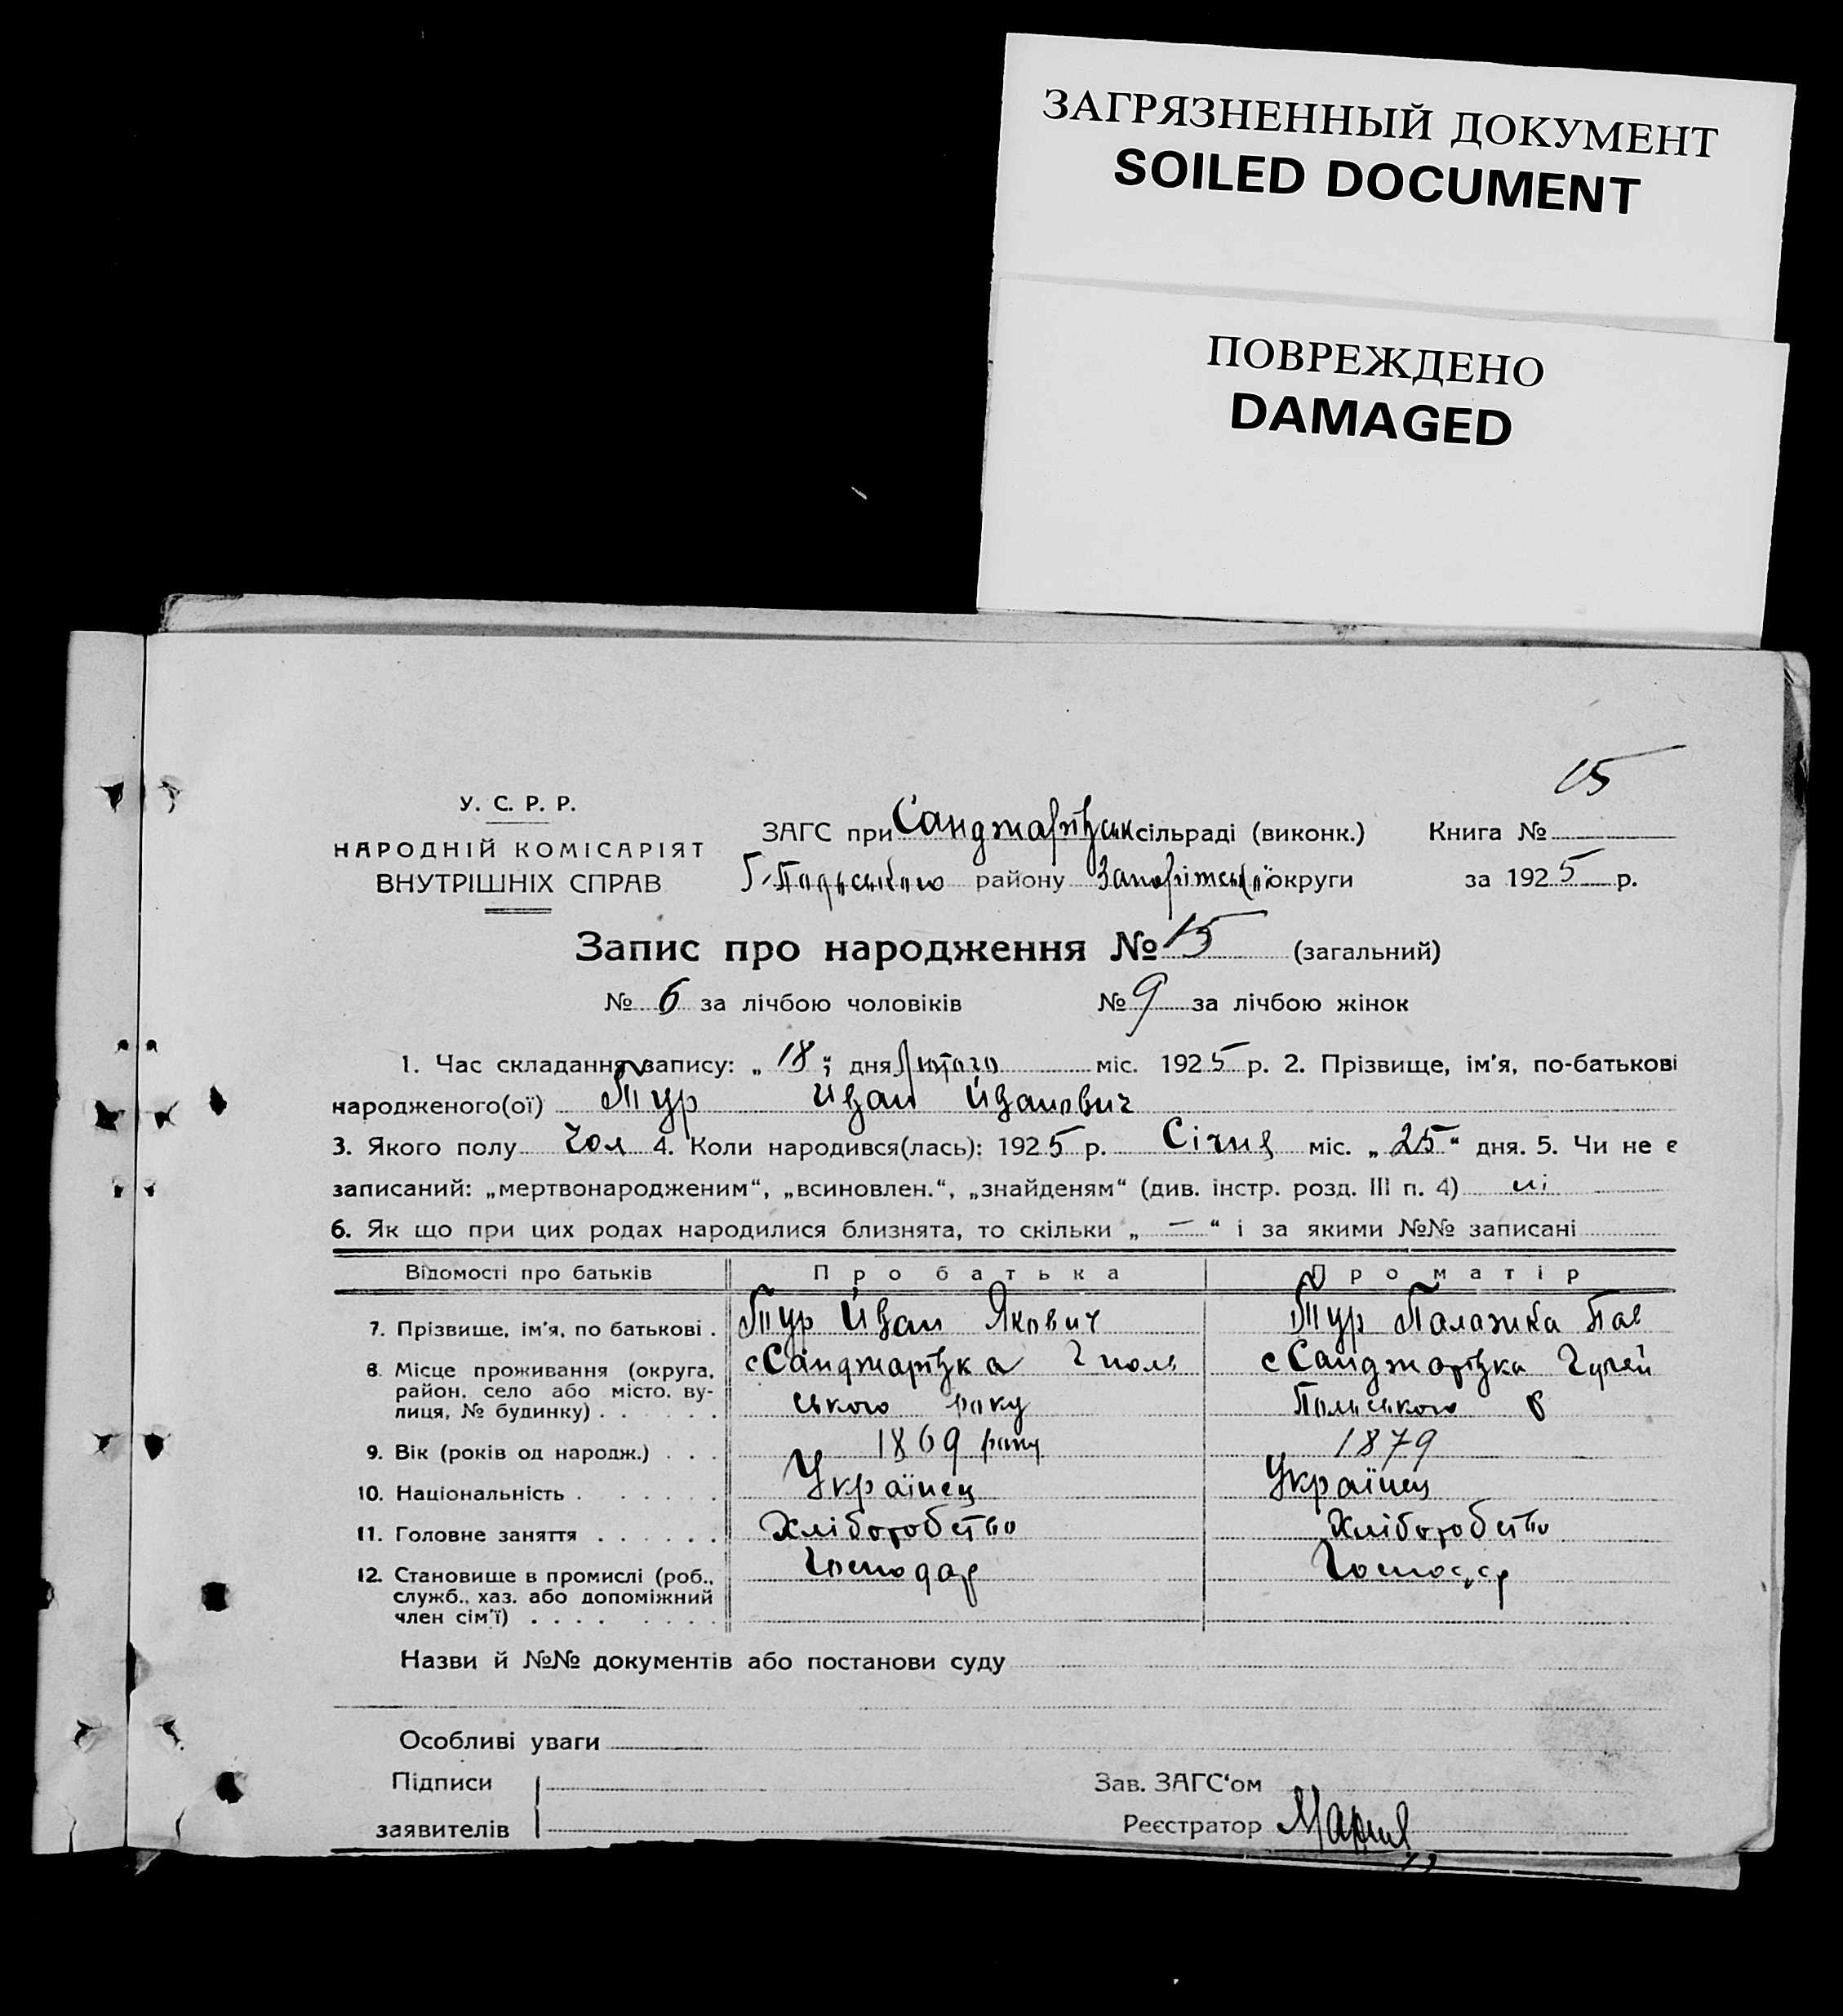 ЗАГРЯЗНЕННЫЙ ДОКУМЕНТ
SOILED DOCUMENT
ПОВРЕЖДЕНО
DAMAGED
15
У. С. Р. Р.
НАРОДНІЙ КОМІСАРІЯТ
ВНУТРІШНІХ СПРАВ
ЗАГС при сільраді (виконк.)
району округи
Книга №
за 1925 р.
Запис про народження № 15 (загальний)
№ 6 за лічбою чоловіків № 9 за лічбою жінок
1. Час складання запису: „ 18 “ дня лютого міс. 1925 р. 2. Прізвище, ім'я, по-батькові
народженого(ої) Тур Иван Иванович
3. Якого полу чол 4. Коли народився(лась): 1925 р. Січня міс. „ 25 “ дня. 5. Чи не є
записаний: „мертвонародженим“, „всиновлен.“, „знайденям“ (див. інстр. розд. III п. 4) ні
6. Як що при цих родах народилися близнята, то скільки „ — “ і за якими №№ записані
Відомості про батьків Про батька Про матір
7. Прізвище, ім'я, по батькові . Тур Иван Якович Тур Палажка Пав
8. Місце проживання (округа, с Санджарівка с Санджарівка
район, село або місто, ву-
лиця, № будинку) . . . . . . ського Польського р
9. Вік (років од народж.) . . . 1869 року 1879
10. Національність . . . . . . . Українец Українец
11. Головне заняття . . . . . . Хліборобство Хліборобство
12. Становище в промислі (роб., Господар Господар
служб., хаз. або допоміжний
член сім'ї) . . . . . . . . .
Назви й №№ документів або постанови суду
Особливі уваги
Підписи
заявителів
Зав. ЗАГС‘ом
Реєстратор